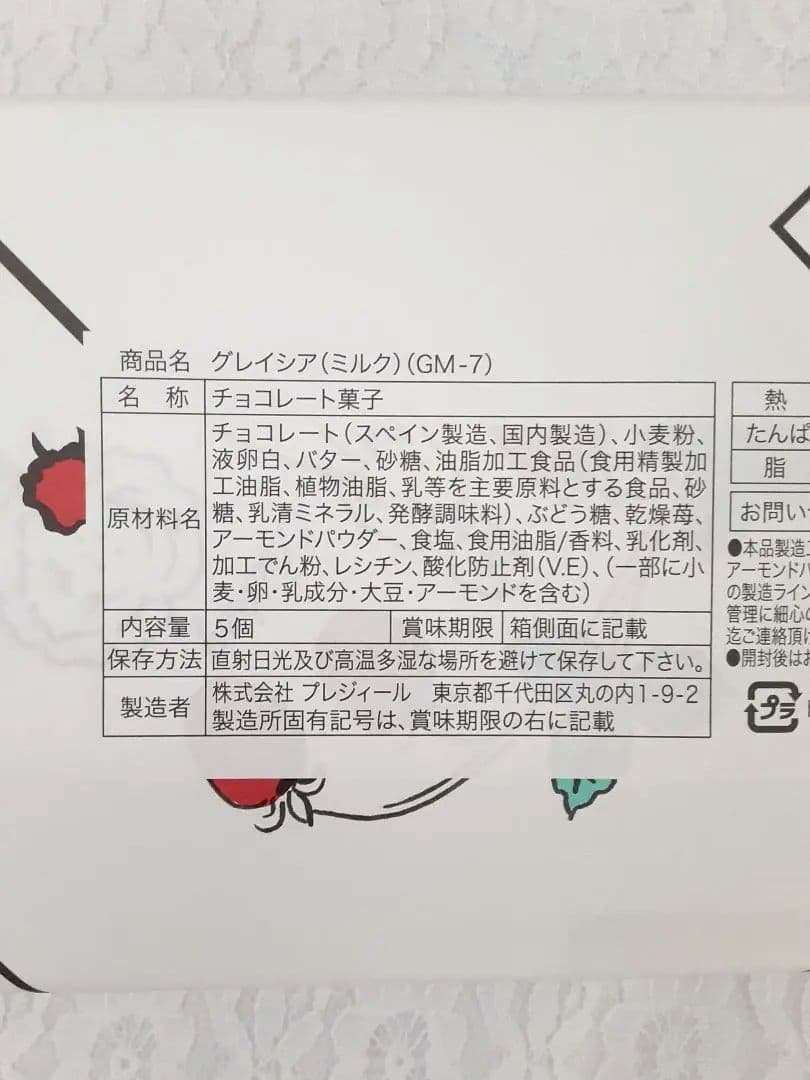 商品名 グレイシア(ミルク)(GM-7)
名 称 チョコレート菓子
原材料名
チョコレート(スペイン製造、国内製造)、小麦粉、
液卵白、バター、砂糖、油脂加工食品(食用精製加
工油脂、植物油脂、乳等を主要原料とする食品、砂
糖、乳清ミネラル、発酵調味料)、ぶどう糖、乾燥苺、
アーモンドパウダー、食塩、食用油脂/香料、乳化剤、
加工でん粉、レシチン、酸化防止剤(V.E)、(一部に小
麦・卵・乳成分・大豆・アーモンドを含む)
内容量 5個 賞味期限 箱側面に記載
保存方法 直射日光及び高温多湿な場所を避けて保存して下さい。
製造者
株式会社 プレジィール 東京都千代田区丸の内1-9-2
製造所固有記号は、賞味期限の右に記載
熱
たんぱ
脂
お問い
●本品製造
アーモンドパ
の製造ライン
管理に細心の
迄ご連絡頂け
●開封後はお
プラ